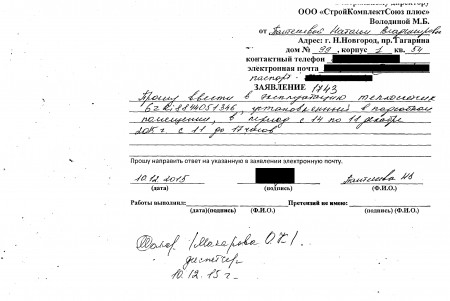 директору
ООО «СтройКомплектСоюз плюс»
Володиной М.Б.
от Пантелеевой Натальи Владимировны
Адрес: г. Н.Новгород, пр. Гагарина
дом № 99, корпус 1 кв. 54
контактный телефон
электронная почта
паспорт -
ЗАЯВЛЕНИЕ 1743
Прошу ввести в эксплуатацию теплосчетчик
установленный в
помещении, в период с 14 по 18 декабря
2015 г. с 11 до 17 часов
Прошу направить ответ на указанную в заявлении электронную почту.
10.12.2015 Пантелеева НВ
(дата) (подпись) (Ф.И.О.)
Работы выполнил: Претензий не имею:
(дата)(подпись) (Ф.И.О.) (подпись) (Ф.И.О.)
/Макарова О.К/.
диспетчер
10.12.15 г.